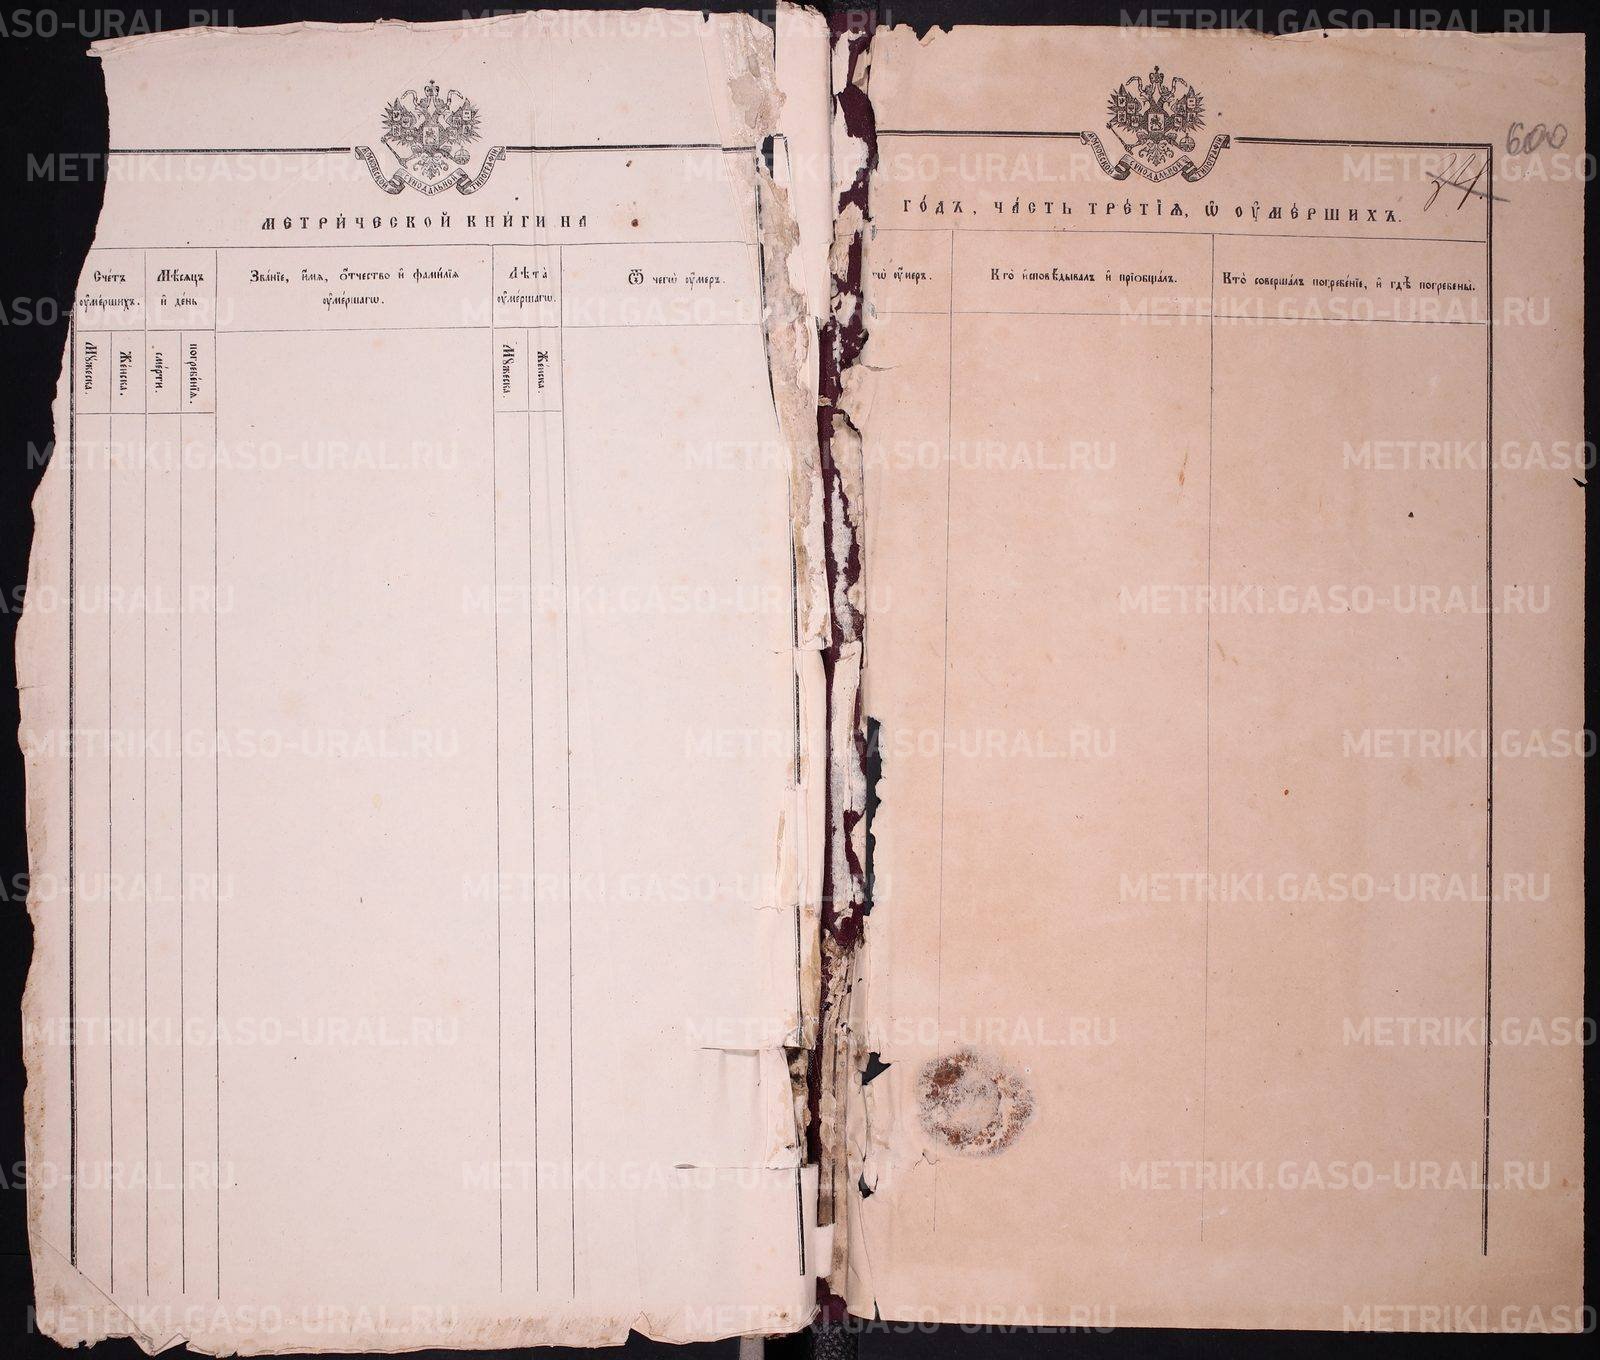 МОСКОВСКОЙ СѴНОДАЛЬНОЙ ТИПОГРАФІИ
МЕТРИ́ЧЕСКОЙ КНИ́ГИ НА
Сче́тъ оу҆ме́ршихъ.
Мѣ́сяцъ и҆ де́нь
Зва́нїе, и҆́мя, ѻ҆́тчество и҆ фами́лїя оу҆ме́ршагѡ.
Лѣ́та оу҆ме́ршагѡ.
Ѿ чегѡ̀ оу҆́меръ.
Мꙋ́жеска.
Же́нска.
сме́рти.
погребе́нїя.
Мꙋ́жеска.
Же́нска.
МОСКОВСКОЙ СѴНОДАЛЬНОЙ ТИПОГРАФІИ
600
34.
ГО́ДЪ, ЧА́СТЬ ТРЕ́ТЇЯ, Ѡ҆ ОУ҆МЕ́РШИХЪ.
гѡ̀ оу҆́меръ.
Кто̀ и҆сповѣ́дывалъ и҆ прїѻбща́лъ.
Кто̀ соверша́лъ погребе́нїе, и҆ гдѣ̀ погребены̀.
METRIKI.GASO-URAL.RU